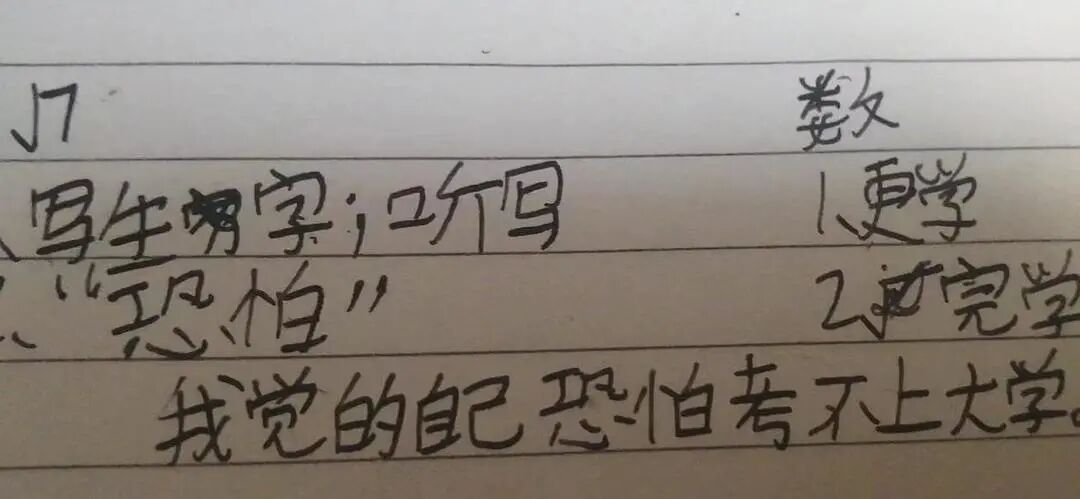 数
写生字；听写
1、更学
"恐怕"
2、完学
我觉的自己恐怕考不上大学。